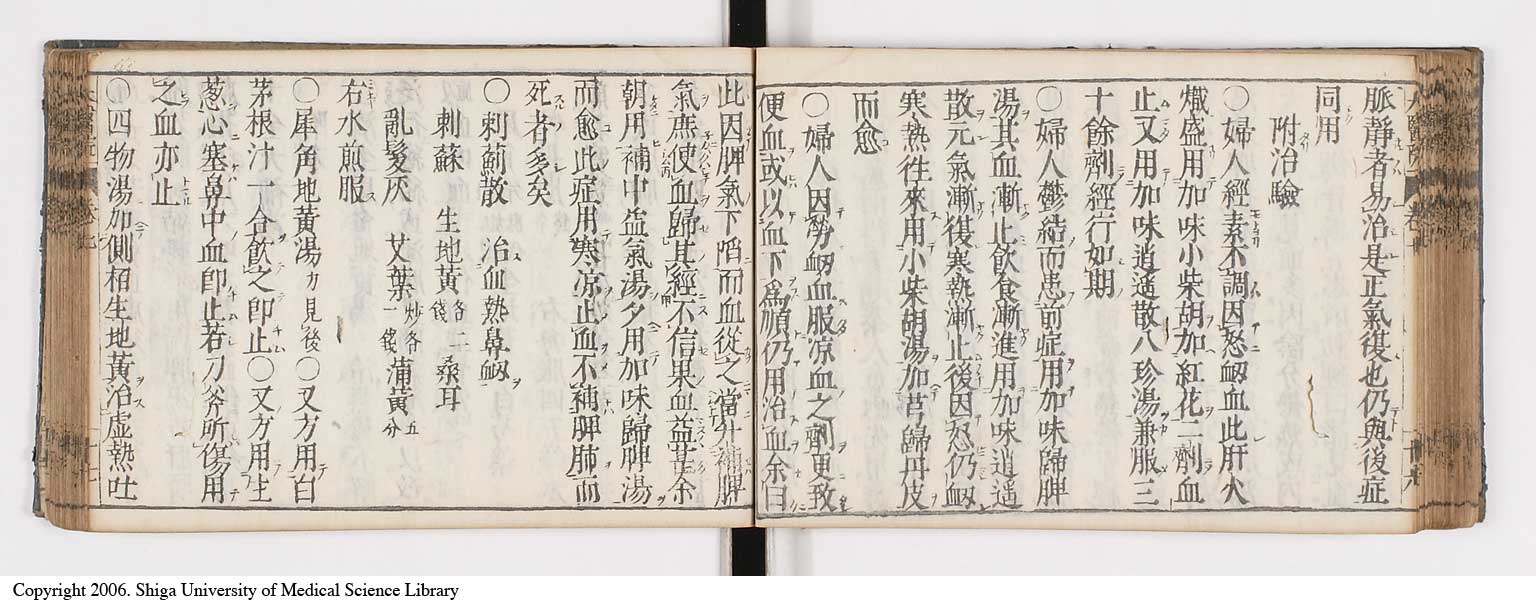 脈靜者易治是正氣復也仍與後症
同用
附治驗
〇婦人經素不調因怒衂血此肝火
熾盛用加味小柴胡加紅花二劑血
止又用加味逍遥散八珍湯兼服三
十餘劑經行如期
〇婦人鬱結而患前症用加味歸脾
湯其血漸止飲食漸進用加味逍遥
散元氣漸復寒熱漸止後因怒仍衂
寒熱徃來用小柴胡湯加芎歸丹皮
而愈
〇婦人因勞衂血服凉血之劑更致
便血或以血下爲順仍用治血余曰
此因脾氣下陷而血從之當升補脾
氣庶使血歸其經不信果血益甚余
朝用補中益氣湯夕用加味歸脾湯
而愈此症用寒凉止血不補脾肺而
死者多矣
〇刺薊散 治血熱鼻衂
刺蘇 生地黃各二錢 桑耳
亂髪灰 艾葉炒各一錢 蒲黃五分
右水煎服
〇犀角地黃湯方見後〇又方用白
茅根汁一合飲之即止〇又方用生
葱心塞鼻中血即止若刀斧所傷用
之血亦止
〇四物湯加側栢生地黃治虛熱吐
Copyright 2006. Shiga University of Medical Science Library